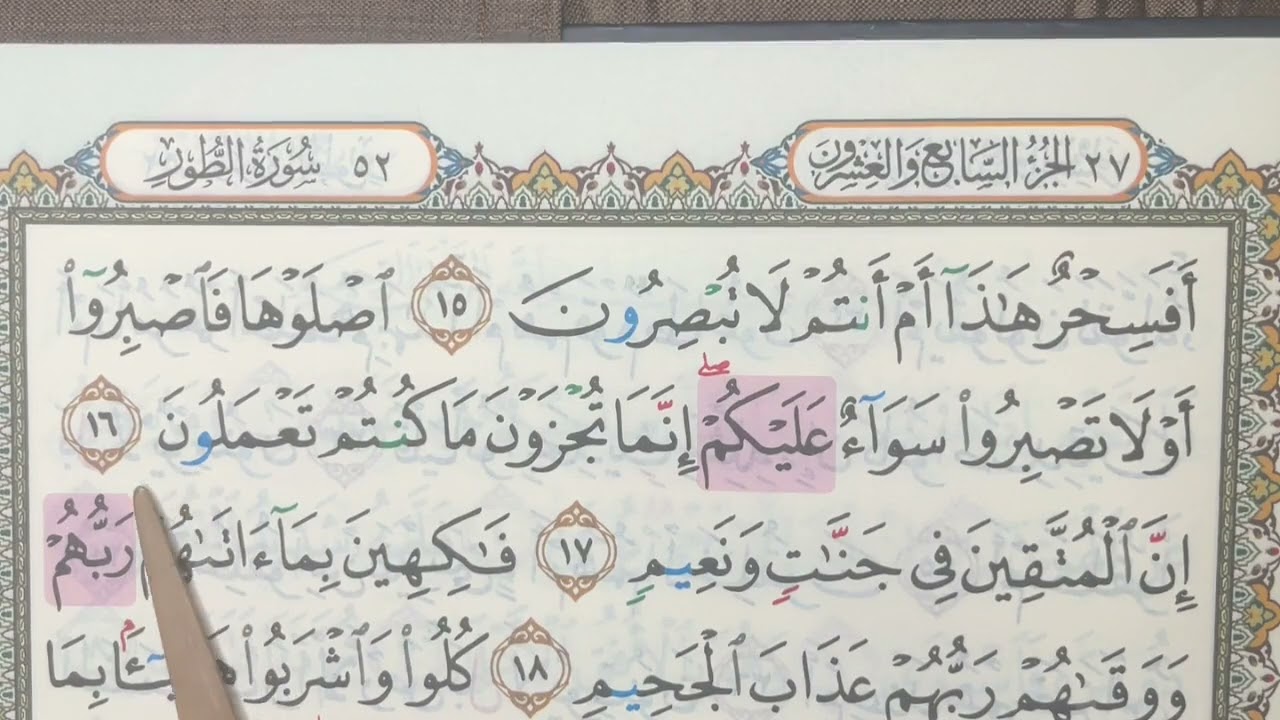 ٢٧ الجُزْءُ السَّابِعُ وَالعِشْرُونَ
٥٢ سُورَةُ الطُّورِ
أَفَسِحْرٌ هَٰذَآ أَمْ أَنتُمْ لَا تُبْصِرُونَ ١٥ ٱصْلَوْهَا فَٱصْبِرُوٓا۟
أَوْ لَا تَصْبِرُوا۟ سَوَآءٌ عَلَيْكُمْ ۖ إِنَّمَا تُجْزَوْنَ مَا كُنتُمْ تَعْمَلُونَ ١٦
إِنَّ ٱلْمُتَّقِينَ فِى جَنَّٰتٍ وَنَعِيمٍ ١٧ فَٰكِهِينَ بِمَآ ءَاتَىٰهُمْ رَبُّهُمْ
وَوَقَىٰهُمْ رَبُّهُمْ عَذَابَ ٱلْجَحِيمِ ١٨ كُلُوا۟ وَٱشْرَبُوا۟ بِمَا